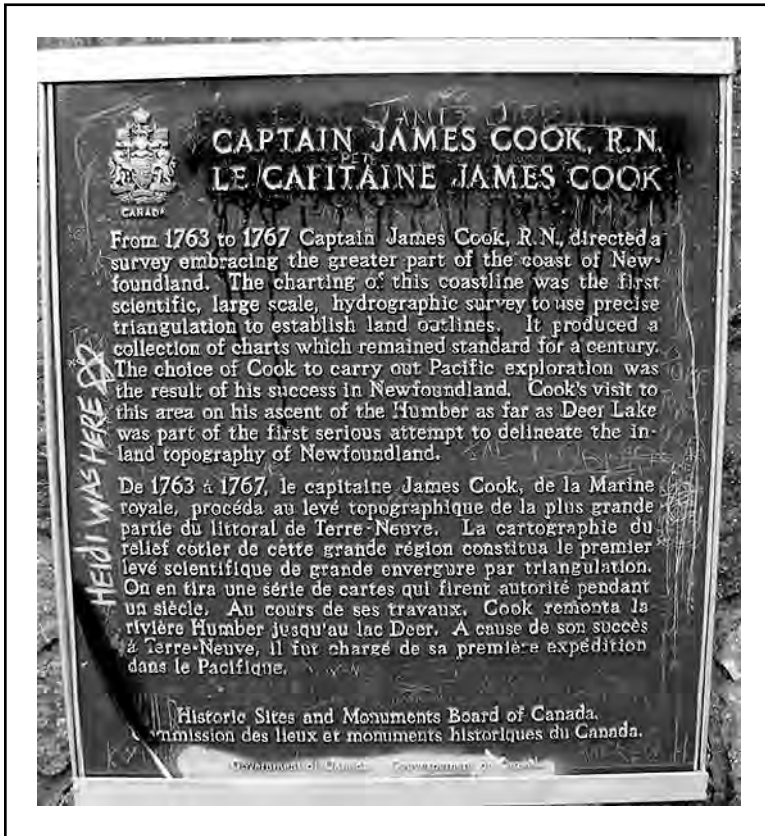 CAPTAIN JAMES COOK, R.N.
PETE
LE CAPITAINE JAMES COOK
CANADA
From 1763 to 1767 Captain James Cook, R.N., directed a
survey embracing the greater part of the coast of New-
foundland. The charting of this coastline was the first
scientific, large scale, hydrographic survey to use precise
triangulation to establish land outlines. It produced a
collection of charts which remained standard for a century.
The choice of Cook to carry out Pacific exploration was
the result of his success in Newfoundland. Cook's visit to
this area on his ascent of the Humber as far as Deer Lake
was part of the first serious attempt to delineate the in-
land topography of Newfoundland.
HEIDI WAS HERE
De 1763 à 1767, le capitaine James Cook, de la Marine
royale, procéda au levé topographique de la plus grande
partie du littoral de Terre-Neuve. La cartographie du
relief côtier de cette grande région constitua le premier
levé scientifique de grande envergure par triangulation.
On en tira une série de cartes qui firent autorité pendant
un siècle. Au cours de ses travaux, Cook remonta la
rivière Humber jusqu'au lac Deer. A cause de son succès
à Terre-Neuve, il fut chargé de sa première expédition
dans le Pacifique.
Historic Sites and Monuments Board of Canada.
Commission des lieux et monuments historiques du Canada.
Government of Canada Gouvernement du Canada